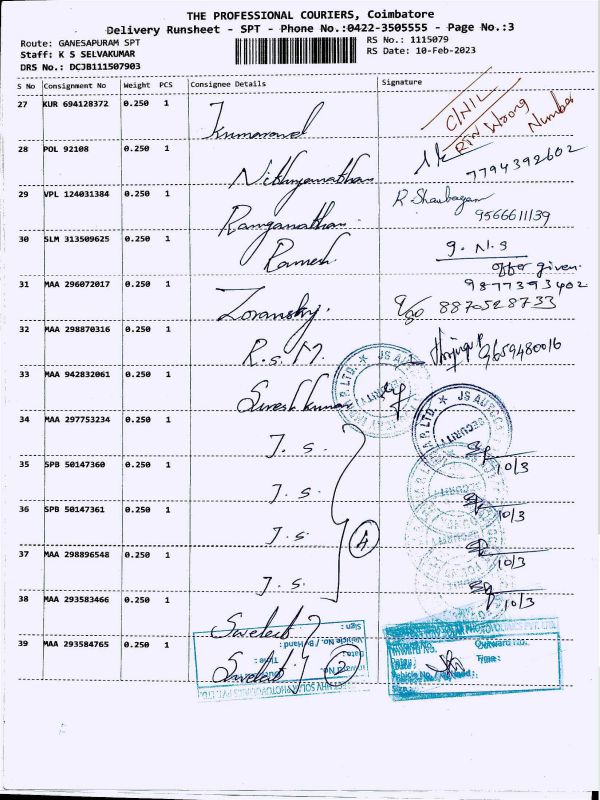 THE PROFESSIONAL COURIERS, Coimbatore
Delivery Runsheet - SPT - Phone No.:0422-3505555 - Page No.:3
Route: GANESAPURAM SPT
RS No.: 1115079
Staff: K S SELVAKUMAR
RS Date: 10-Feb-2023
DRS No.: DCJB111507903
S No Consignment No Weight PCS Consignee Details Signature
27 KUR 694128372 0.250 1
Wrong Number
28 POL 92108 0.250 1
7794392602
29 VPL 124031384 0.250 1 Ranganathan
9566611139
30 SLM 313509625 0.250 1 Ramesh
offer given
31 MAA 296072017 0.250 1
8870528733
32 MAA 298870316 0.250 1 R.s.M.
9659480016
33 MAA 942832061 0.250 1 Sureshkumar
34 MAA 297753234 0.250 1 J.s.
10/3
35 SPB 50147360 0.250 1 J.s.
10/3
36 SPB 50147361 0.250 1 J.s.
4
10/3
37 MAA 298896548 0.250 1 J.s.
10/3
38 MAA 293583466 0.250 1
39 MAA 293584765 0.250 1
2